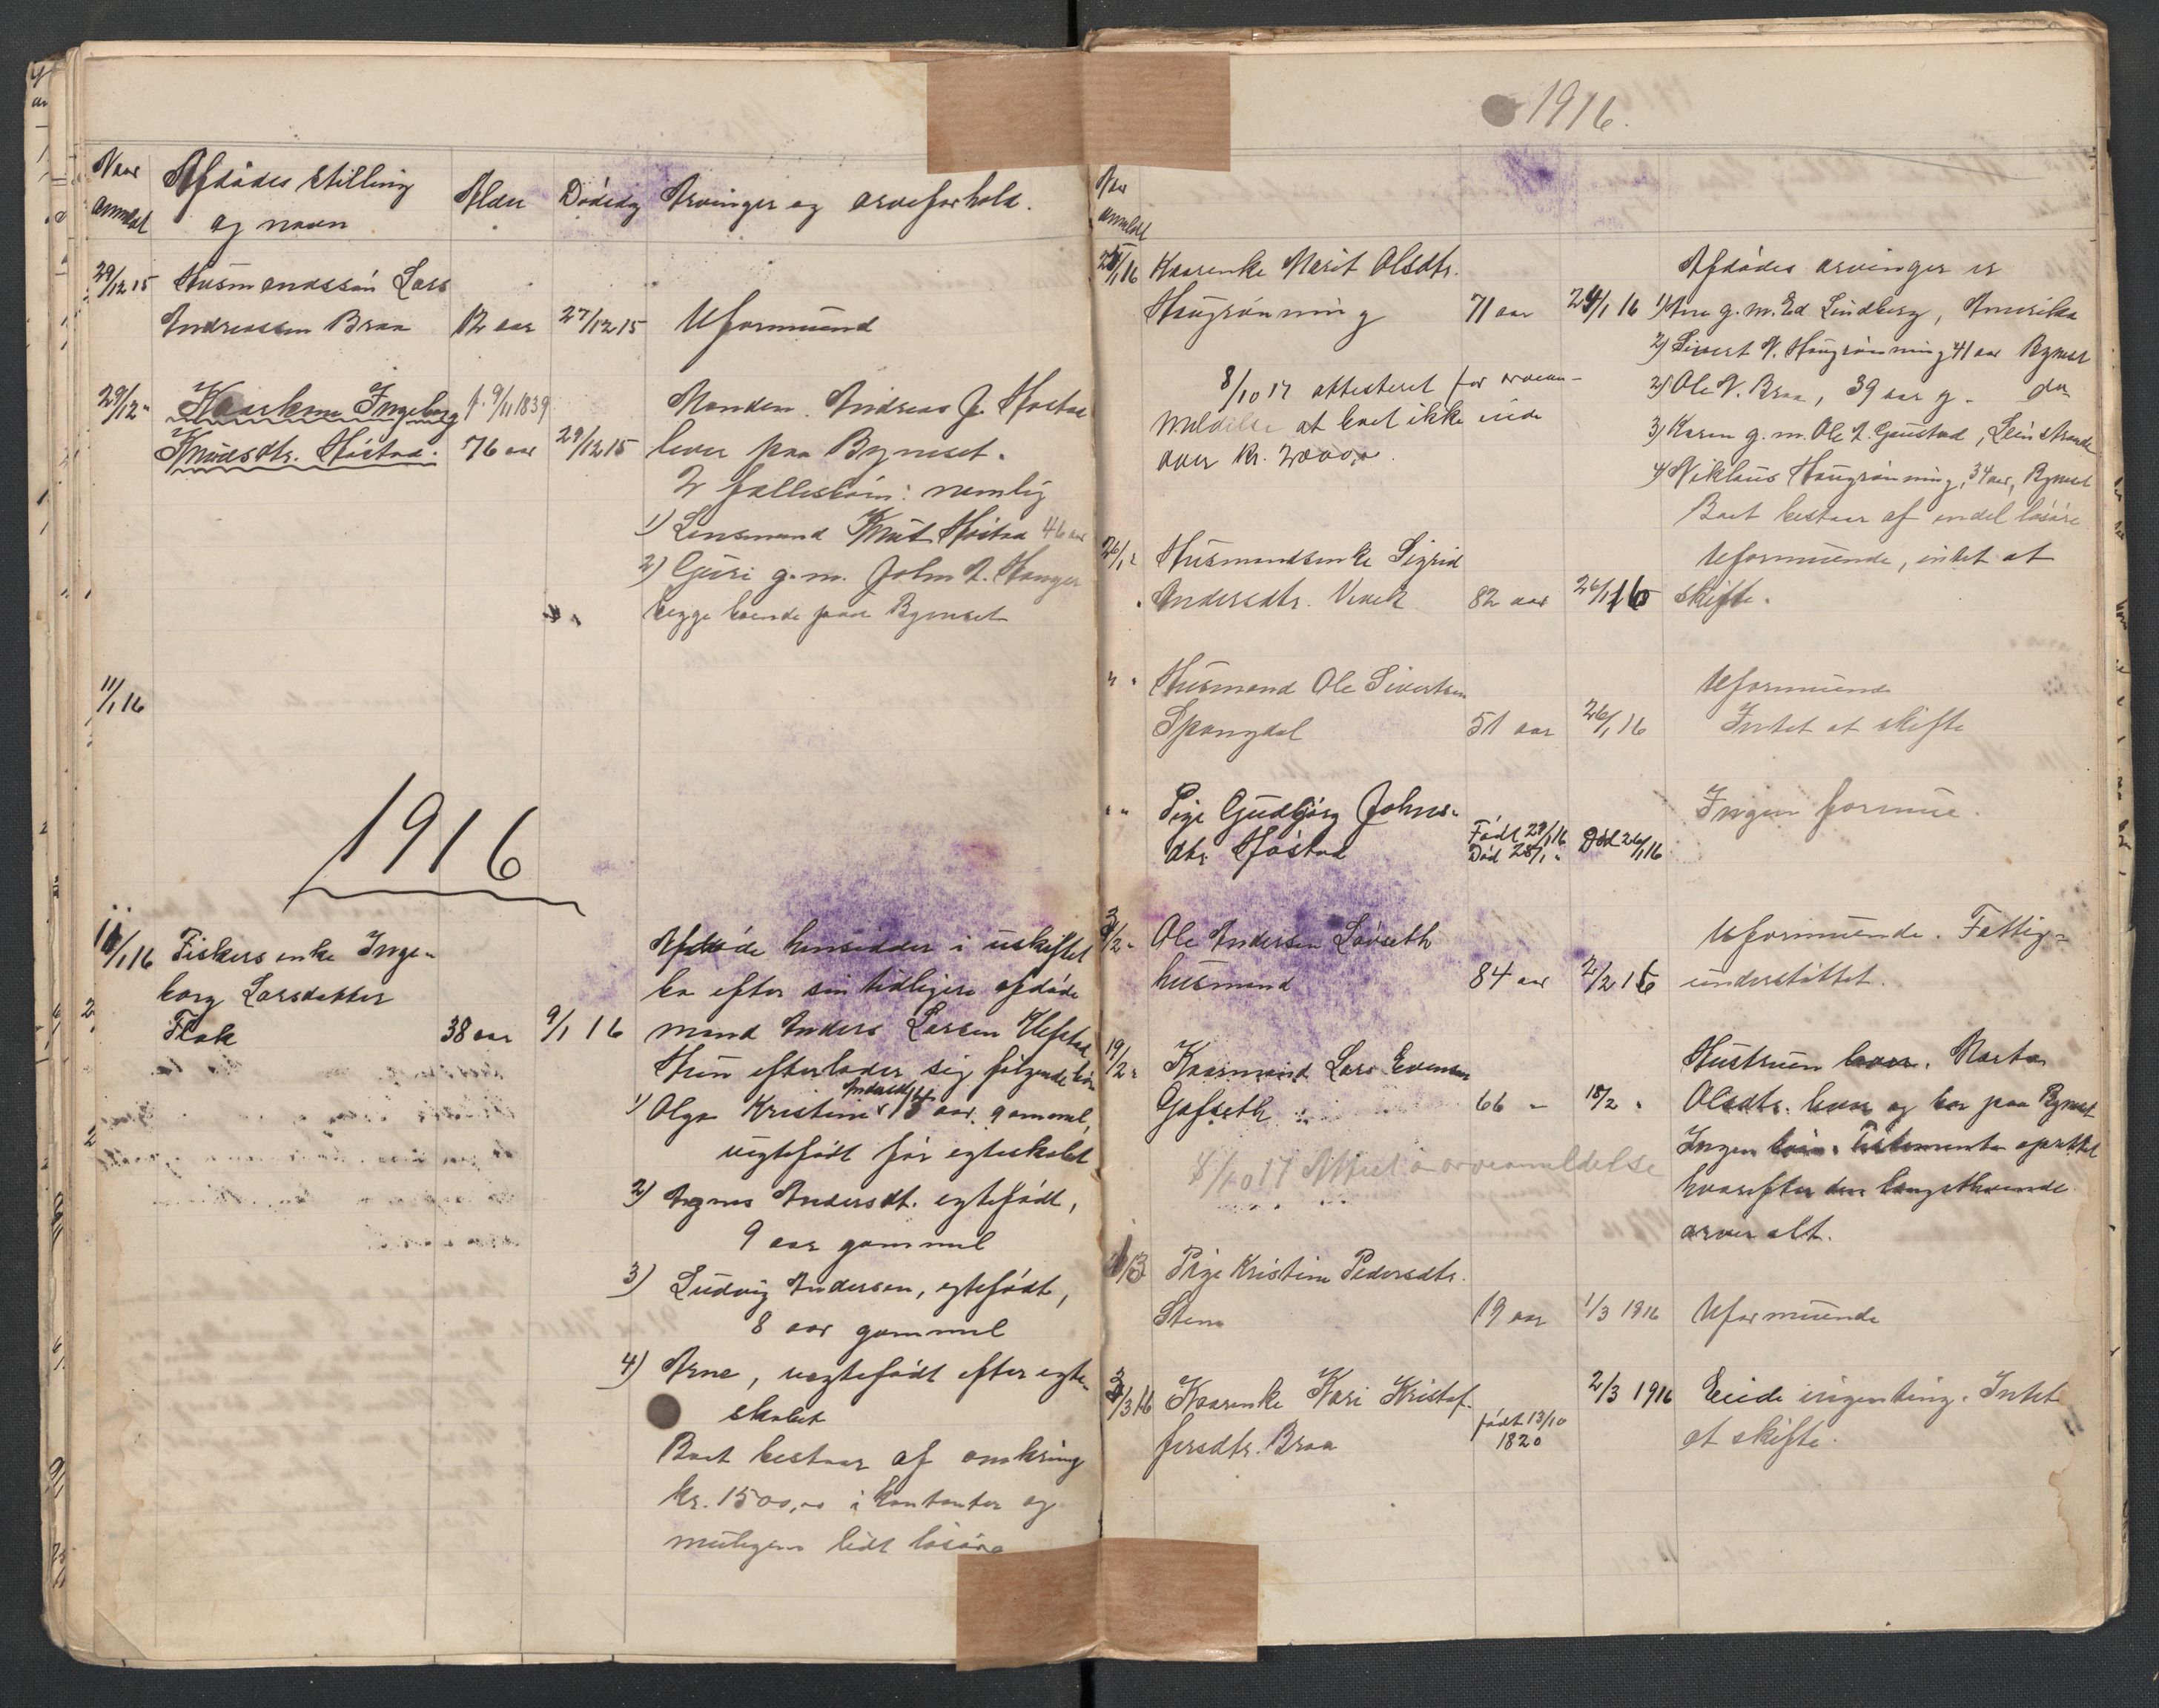 Naar
anmeldt
Afdødes stilling
og navn
Alder
Dødsdag
Arvinger og arveforhold.
29/12 15 Husmandssøn Lars
Andreassen Braa 12 aar 27/12 15 Uformuend
29/12 " Kaarkone Ingeborg f. 9/11 1839 Manden Andreas J. Høstad
Knudsdtr. Høstad. 76 aar 29/12 15 lever paa Bynæset.
2 fællesbørn: nemlig
1) Lensmand Knut Høstad 46 aar
2) Guri g. m. John L. Hanger
begge boende paa Bynæset
11/1 16
1916
11/1 16 Fiskers enke Inge-
borg Larsdatter
Flak 38 aar 9/1 16
Afdøde hensidder i uskiftet
bo efter sin tidligere afdøde
mand Anders Larsen Klefstad
Hun efterlader sig følgende børn
1) Olga Kristine Andersdtr. 15 aar gammel,
uegtefødt før egteskabet
2) Agnes Andersdt. egtefødt,
9 aar gammel
3) Ludvig Andersen, egtefødt,
8 aar gammel
4) Arne, uegtefødt efter egte-
skabet
Boet bestaar af omkring
kr. 1500,00 i kontanter og
muligens lidt løsøre
1916.
Naar
anmeldt
Kaarenke Marit Olsdtr. Afdødes arvinger er
Haugrønning 71 aar 24/1 16 1) Ane g. m. Ed Lindberg, Amerika
2) Sivert N. Haugrønning 41 aar Bynæset
8/10 17 attesteret for arvean- 2) Ole N. Braa, 39 aar g. - do
meldelse at boet ikke eide 3) Karen g. m. Ole L. Gaustad, Leinstrande
over kr. 2000,00. 4) Niklaus Haugrønning, 34 aar, Bynæset
Boet bestaar af endel løsøre
26/1 " Husmandsenke Sigrid Uformuende, intet at
Andersdtr. 82 aar 26/1 16 skifte.
" " Husmand Ole Sivertsen Uformuende
Spongdal 51 aar 26/1 16 Intet at skifte
" " Pige Gudbjørg Johns- Ingen formue.
dtr Høstad Født 29/1 16
Død 28/1 " Død 26/1 16
3/2 " Ole Andersen Løvseth Uformuende. Fattig-
husmand 84 aar 2/2 16 understøttet.
19/2 " Kaarmand Lars Evensen Hustruen lever. Marta
Gafseth 66 " 18/2 " Olsdtr. lever og bor paa Bynæset
Ingen børn. Testamente oprettet
8/10 17 Attest arveanmeldelse hvorefter den længstlevende
arver alt.
1/3 Pige Kristine Pedersdtr.
Stene 19 aar 1/3 1916 Uformuende
3/3 16 Kaarenke Kari Kristof- 2/3 1916 Eiede ingenting. Intet
fersdtr. Braa født 13/10
1820 at skifte.